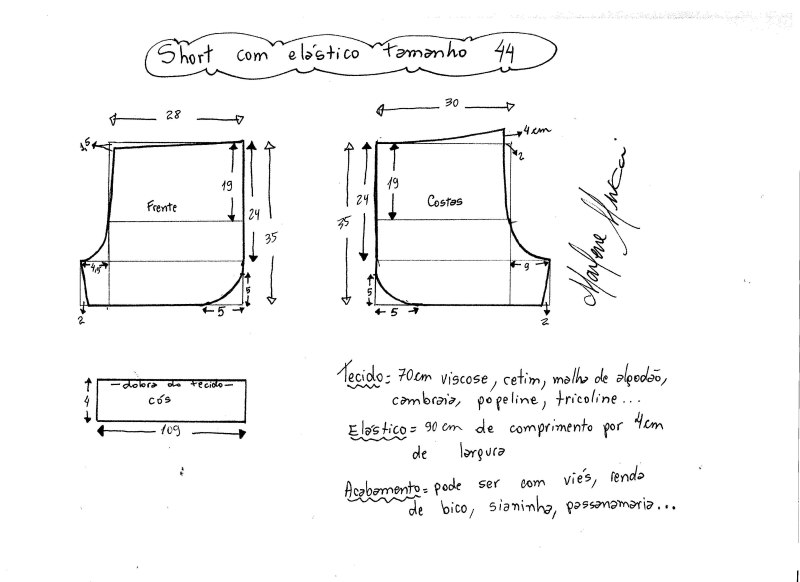 Short com elástico tamanho 44
28
30
1,5
4 cm
2
19
24
35
Frente
19
24
35
Costas
4,5
5
5
2
5
5
9
2
dobra do tecido
cós
4
109
Marlene Mukai
Tecido = 70cm viscose, cetim, malha de algodão,
cambraia, popeline, tricoline...
Elástico = 90 cm de comprimento por 4cm
de largura
Acabamento = pode ser com viés, renda
de bico, sianinha, passanamaria...